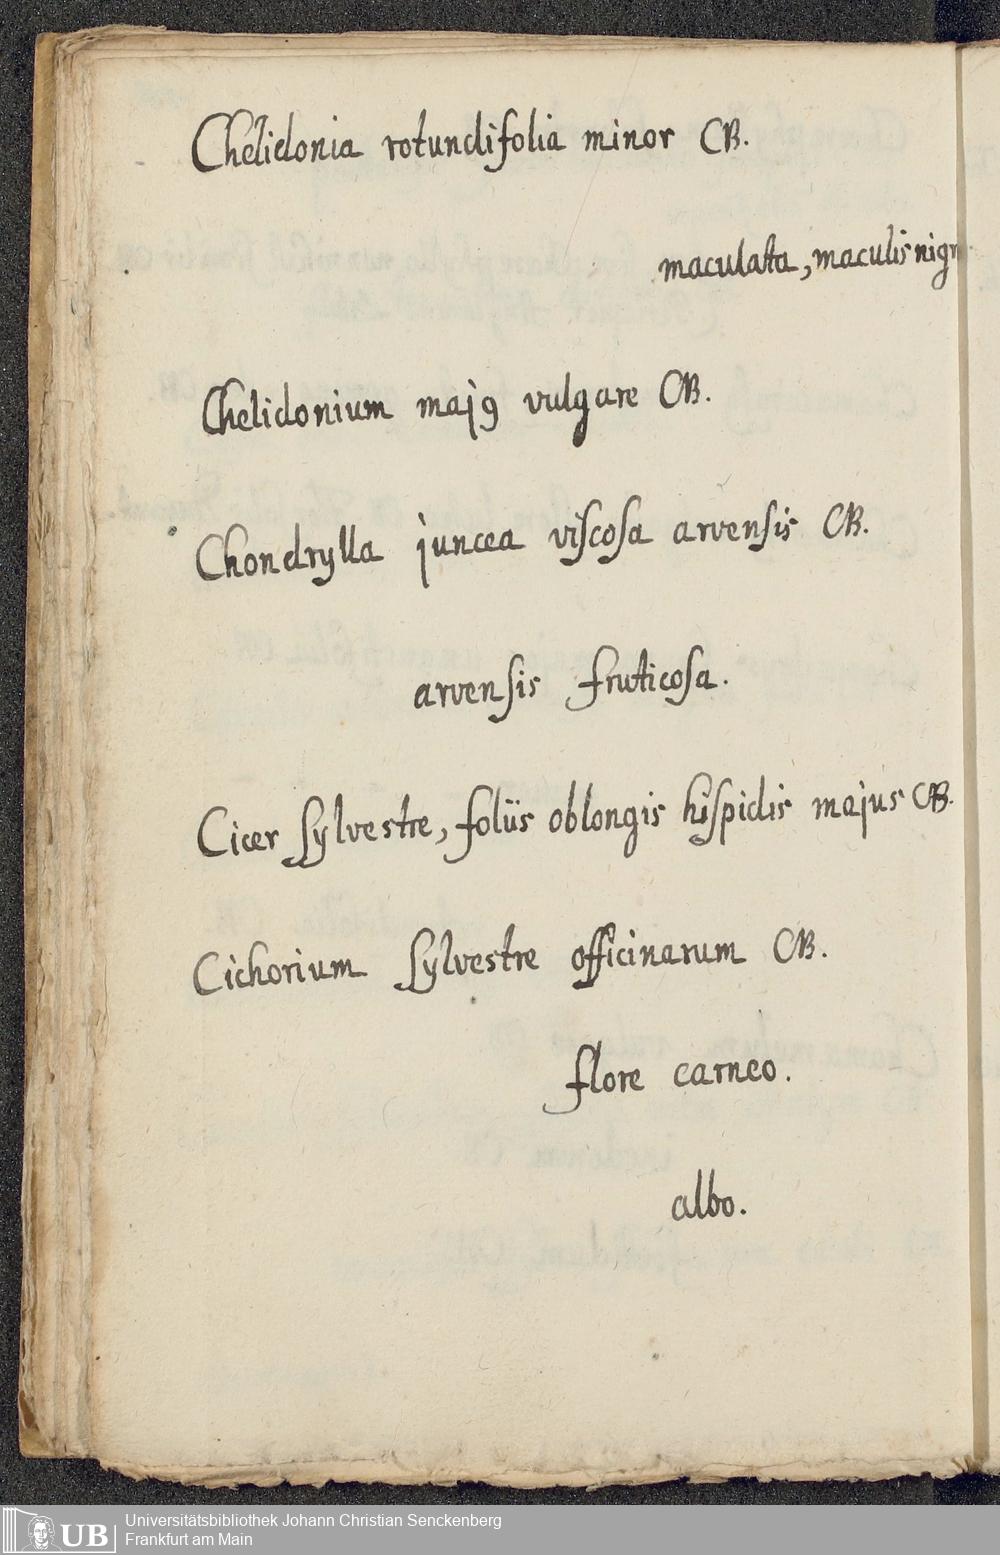 Chelidonia rotundifolia minor CB.
maculata, maculis nigr
Chelidonium maj9 vulgare CB.
Chondrylla juncea viscosa arvensis CB.
arvensis fruticosa.
Cicer sylvestre, foliis oblongis hispidis majus CB.
Cichorium sylvestre officinarum CB.
flore carneo.
albo.
UB
Universitätsbibliothek Johann Christian Senckenberg
Frankfurt am Main